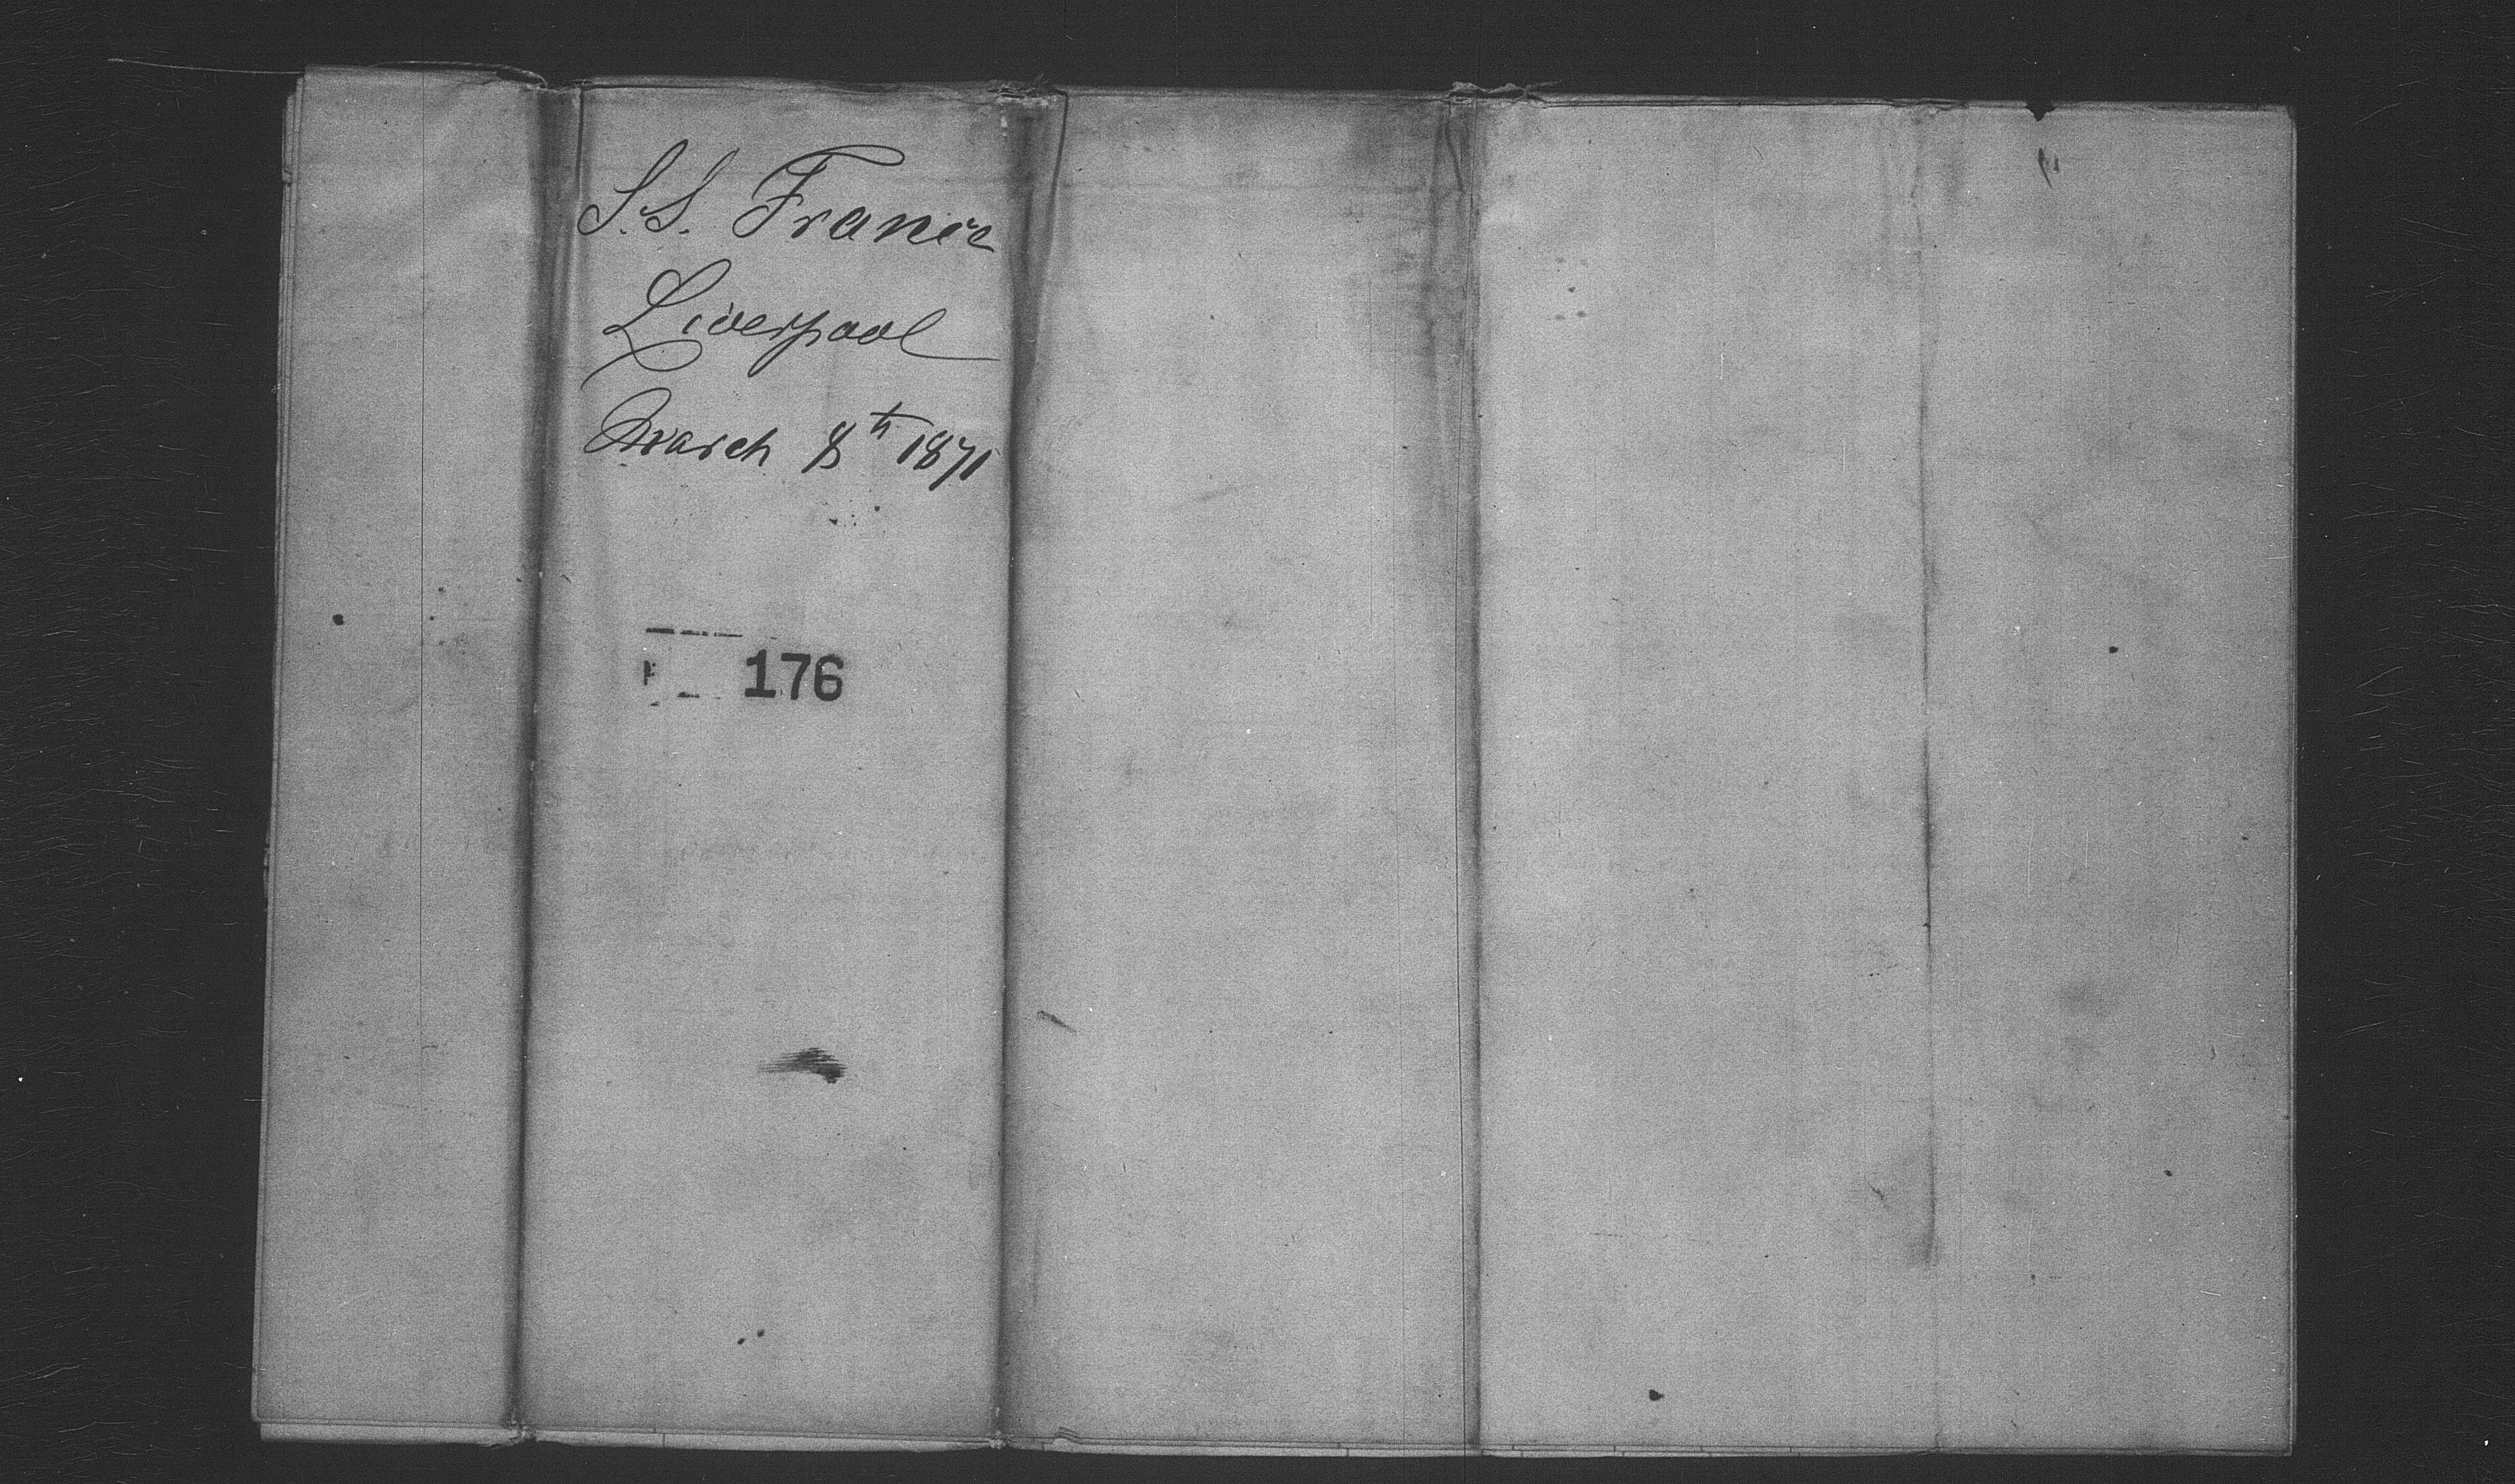 S.S. France
Liverpool
March 8th 1871
176